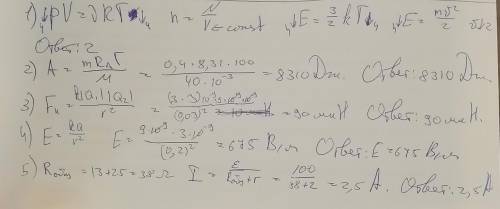 1) ₄↓pV = νRT↓₄ n = N/V = const ₄↓E = 3/2 kT↓₄ ₄↓E = mv²/2 v↓2
Ответ: 2
2) A = mRΔT/M = 0,4 · 8,31 · 100 / 40 · 10⁻³ = 8310 Дж. Ответ: 8310 Дж.
3) Fк = k|q₁||q₂|/r² = = 90 мкН Ответ: 90 мкН.
4) E = kq/r² E = 9·10⁹ · 3·10⁻⁹ / (0,2)² = 675 В/м Ответ: E = 675 В/м
5) Rобщ = 13 + 25 = 38 Ω I = ε / Rобщ + r = 100 / 38 + 2 = 2,5 А. Ответ: 2,5 А